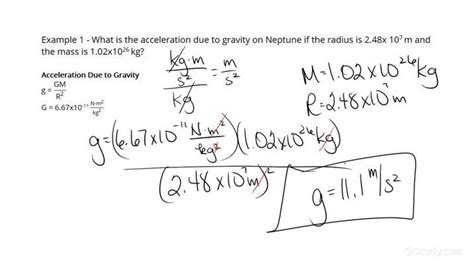 Example 1 - What is the acceleration due to gravity on Neptune if the radius is 2.48x 10⁷ m and
the mass is 1.02x10²⁶ kg?
Acceleration Due to Gravity
g = GM/R²
G = 6.67x10⁻¹¹ N·m²/kg²
kg·m/s² / kg = m/s²
M=1.02x10²⁶kg
R=2.48x10⁷m
g=(6.67x10⁻¹¹ N·m²/kg²)(1.02x10²⁶kg)
(2.48x10⁷m)²
g=11.1 m/s²
Study.com